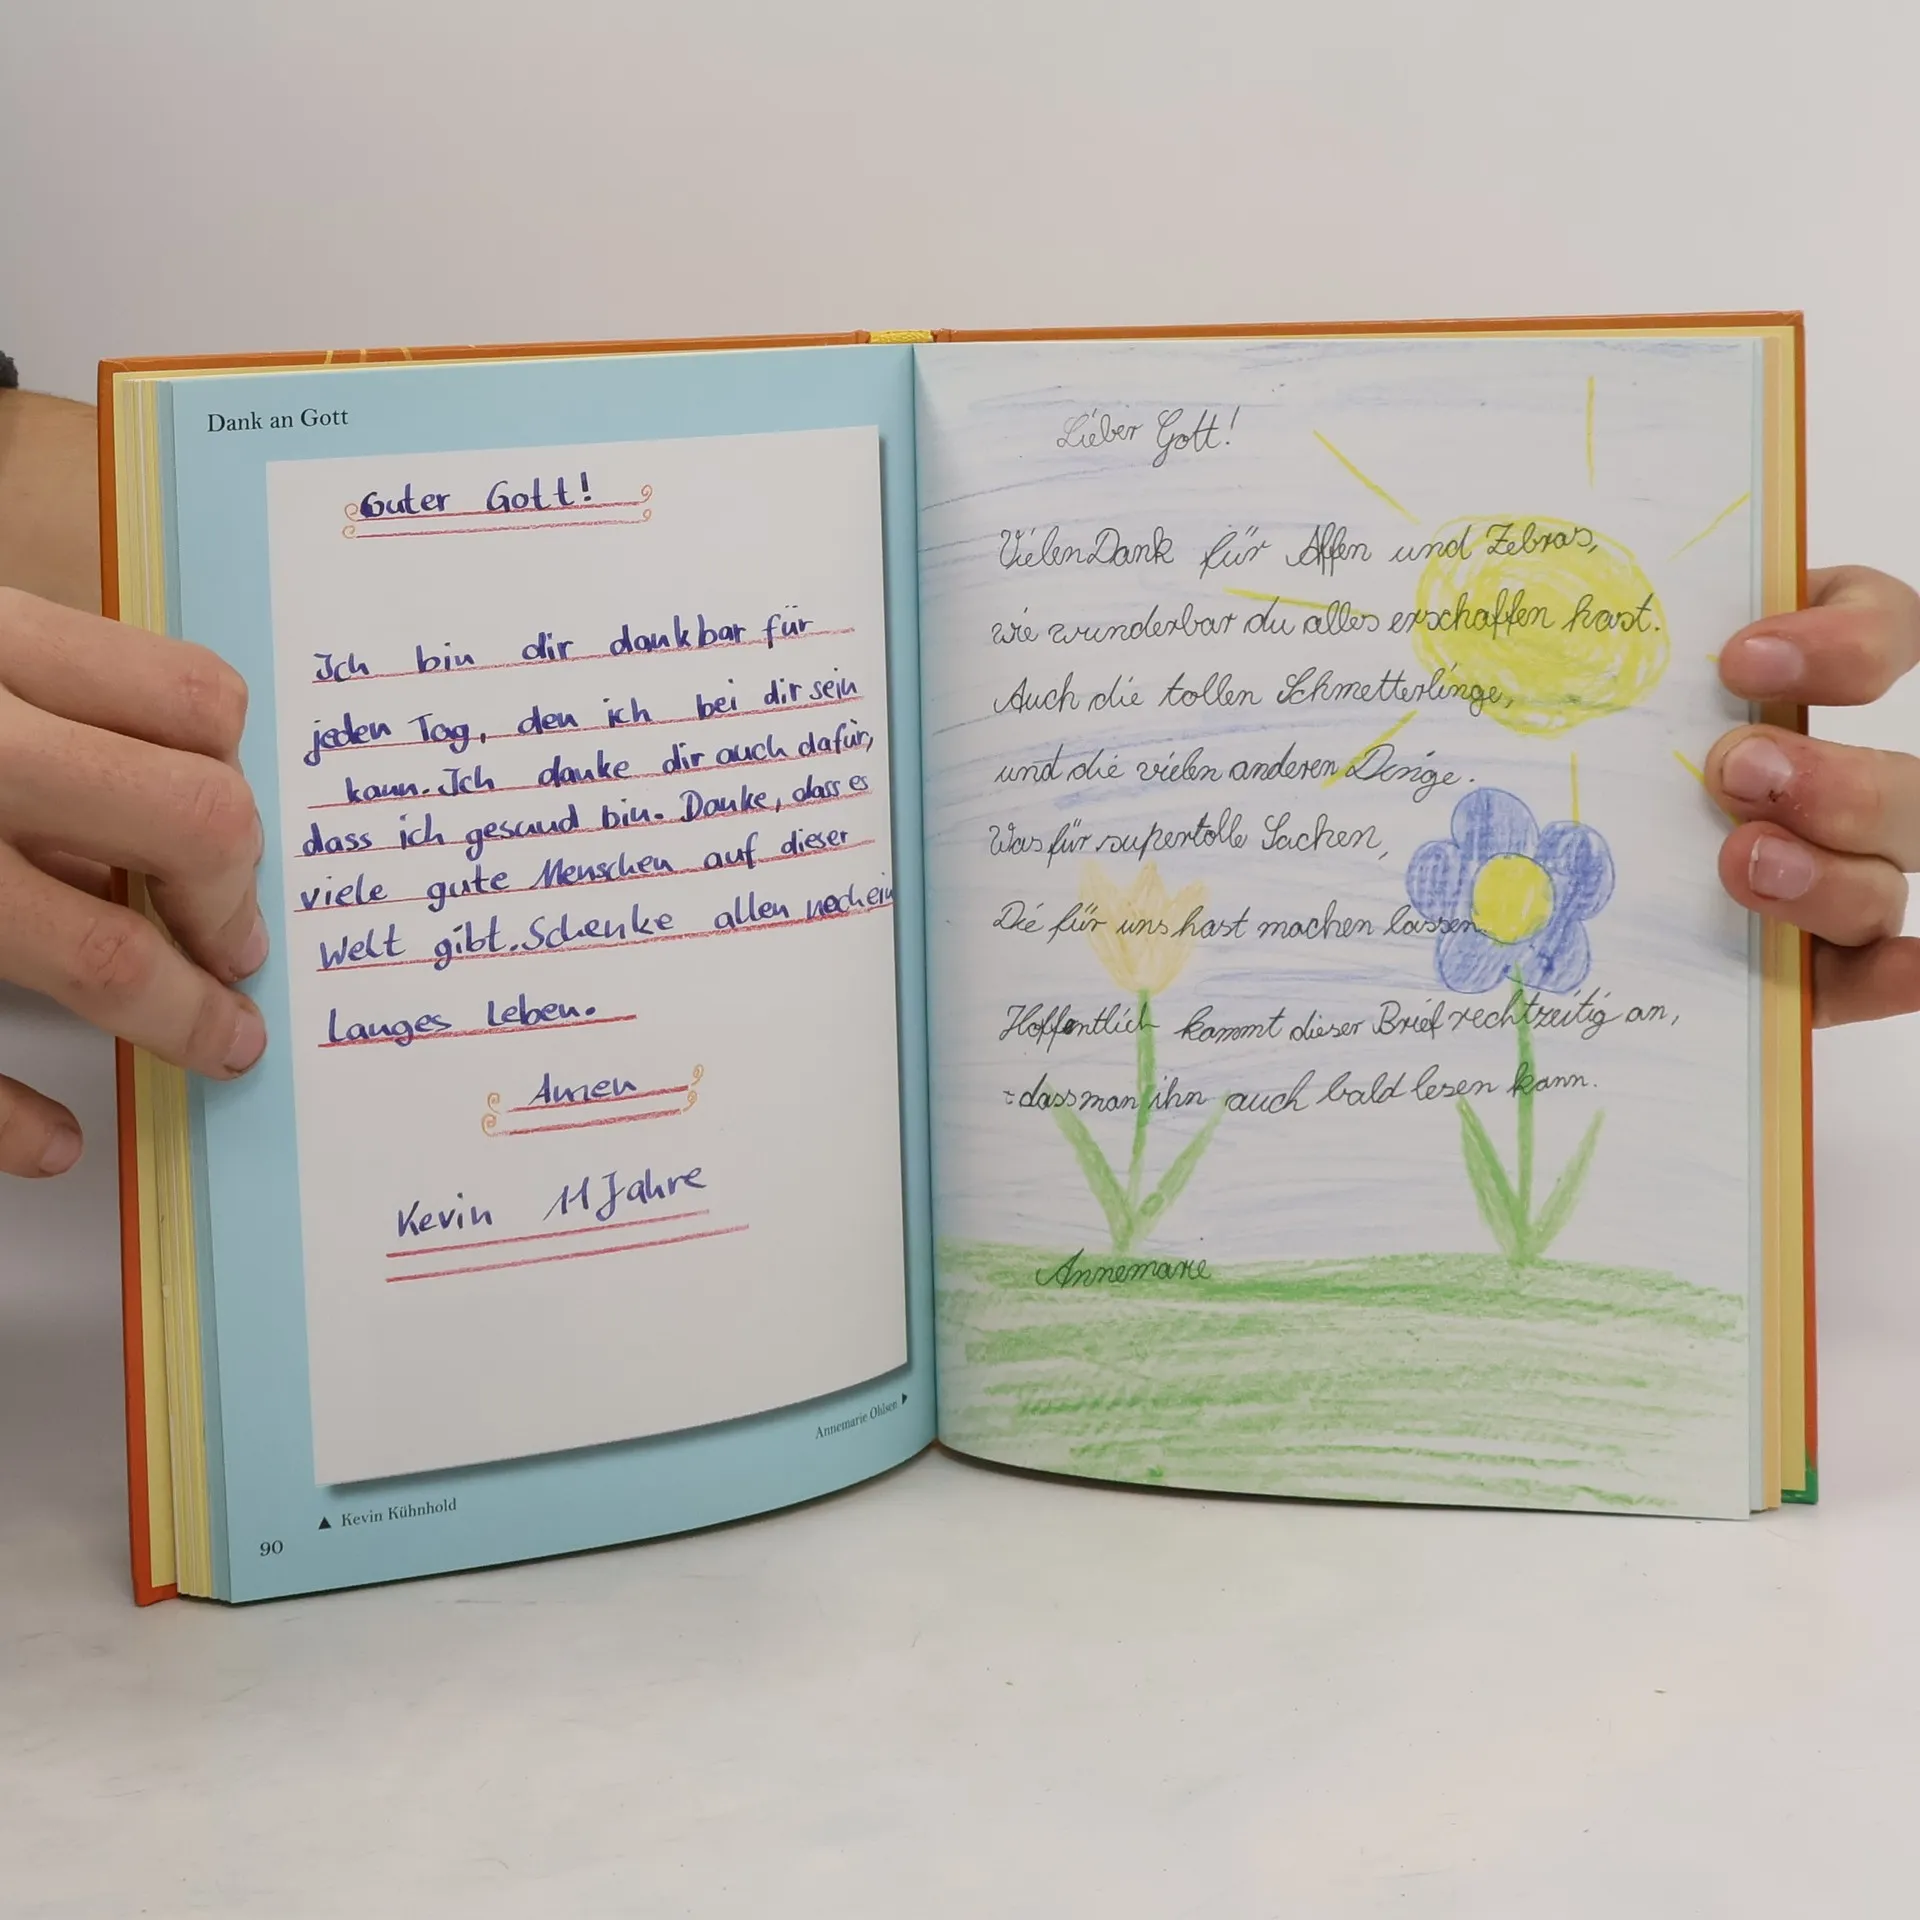 Dank an Gott
Guter Gott!
Ich bin dir dankbar für
jeden Tag, den ich bei dir sein
kann. Ich danke dir auch dafür,
dass ich gesund bin. Danke, dass es
viele gute Menschen auf dieser
Welt gibt. Schenke allen noch ein
langes Leben.
Amen
Kevin 11 Jahre
Annemarie Ohlsen ▶
▲ Kevin Kühnhold
90
Lieber Gott!
Vielen Dank für Affen und Zebras,
wie wunderbar du alles erschaffen hast.
Auch die tollen Schmetterlinge,
und die vielen anderen Dinge.
Was für supertolle Sachen,
Die für uns hast machen lassen.
Hoffentlich kommt dieser Brief rechtzeitig an,
dass man ihn auch bald lesen kann.
Annemarie